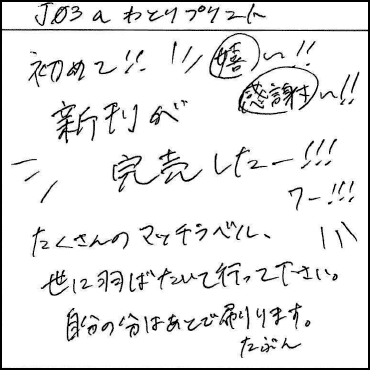 J03a わとりプリント
初めて!! 嬉しい!!
感謝〜!!
新刊が
完売したー!!!
ワー!!!
たくさんのマッチラベル、
世に羽ばたいて行って下さい。
自分の分はあとで刷ります。
たぶん